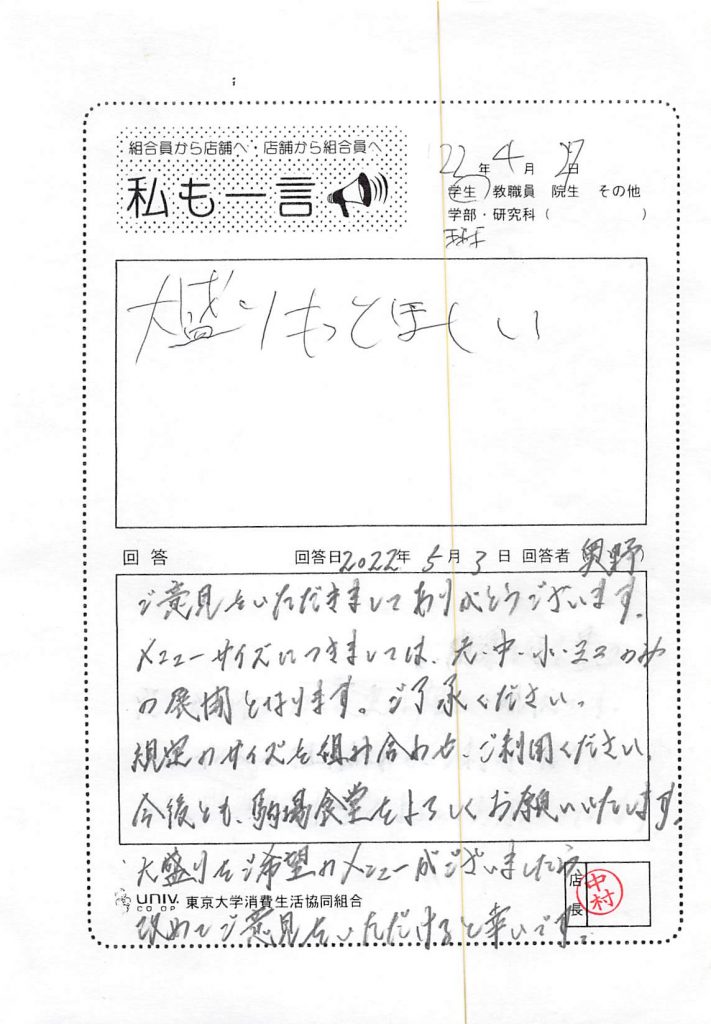 組合員から店舗へ・店舗から組合員へ
私も一言
22年4月27日
学生 教職員 院生 その他
学部・研究科（ ）
大盛りもっとほしい
回答 回答日2022年5月3日 回答者 奥野）
ご意見をいただきましてありがとうございます。
メニューサイズにつきましては、大・中・小・ミニのみ
の展開となります。ご了承ください。
規定のサイズを組み合わせ、ご利用ください。
今後とも、駒場食堂をよろしくお願いいたします。
大盛りをご希望のメニューがございましたら、
店長 中村
univ. CO-OP 東京大学消費生活協同組合
改めてご意見をいただけると幸いです。